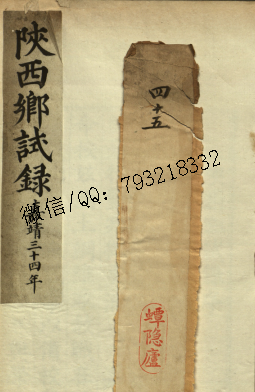 陝西鄉試錄
嘉靖三十四年
四十五
微信/QQ：793218332
蟫隐廬